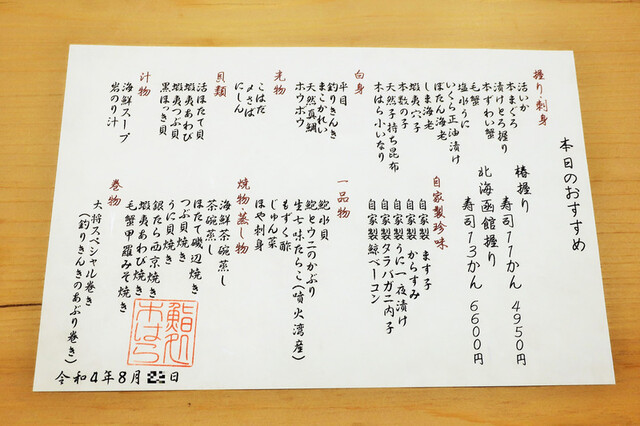 本日のおすすめ
椿握り
寿司11かん 4950円
北海函館握り
寿司13かん 6600円
握り・刺身
活いか
本まぐろ
漬けとろ握り
本ずわい蟹
毛蟹
塩水うに
いくら正油漬け
ぼたん海老
しま海老
蝦夷穴子
本数の子
天然子持ち昆布
木はら小いなり
白身
平目
釣りきんき
まこかれい
天然真鯛
ホウボウ
光物
こはだ
〆さば
にしん
貝類
活ほたて貝
蝦夷あわび
蝦夷つぶ貝
黒ほっき貝
汁物
海鮮スープ
岩のり汁
自家製珍味
自家製 ます子
自家製 からすみ
自家製うに一夜漬け
自家製タラバガニ内子
自家製鯨ベーコン
一品物
鮑水貝
鮑とウニのかぶり
生七味たらこ(噴火湾産)
もずく酢
じゅん菜
ほや刺身
焼物・蒸し物
海鮮茶碗蒸し
茶碗蒸し
ほたて磯辺焼き
つぶ貝焼き
うに貝焼き
銀たら西京焼き
蝦夷あわび焼き
毛蟹甲羅みそ焼き
巻物
大将スペシャル巻き
(釣りきんきのあぶり巻き)
鮨処
木はら
令和4年8月 日